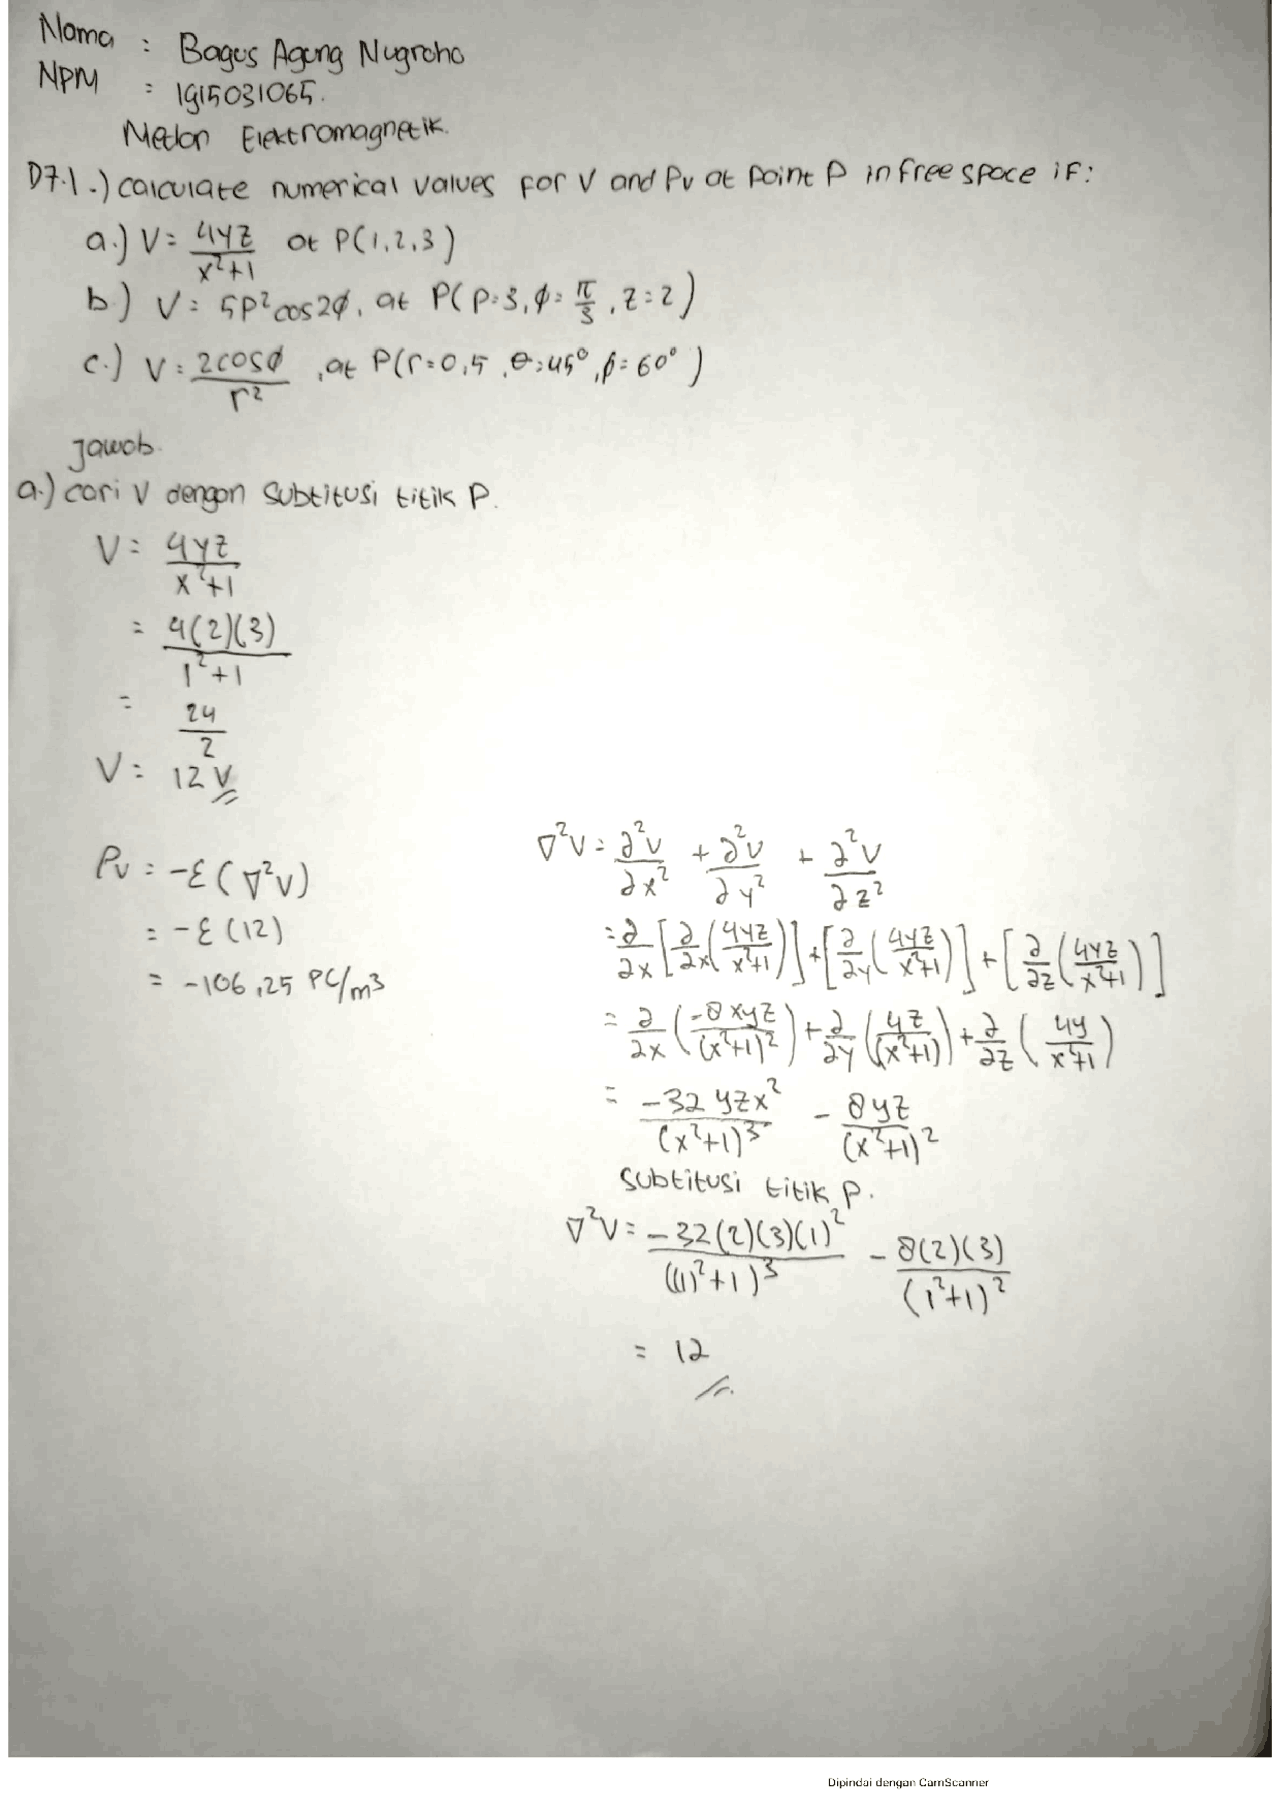 Nama : Bagus Agung Nugroho
NPM : 1915031065.
Medan Elektromagnetik.
D7.1.) calculate numerical values for V and ρv at point P in free space if:
a.) V = 4yz/(x²+1) at P(1,2,3)
b.) V = 5ρ² cos2φ, at P(ρ=3, φ=π/3, z=2)
c.) V = 2cosφ/r², at P(r=0,5, θ=45°, φ=60°)
Jawab.
a.) cari V dengan Subtitusi titik P.
V = 4yz/(x²+1)
= 4(2)(3)/(1²+1)
= 24/2
V = 12 V
ρv = -ε(∇²V)
= -ε(12)
= -106,25 PC/m3
∇²V = ∂²V/∂x² + ∂²V/∂y² + ∂²V/∂z²
= ∂/∂x [∂/∂x (4yz/(x²+1))] + [∂/∂y (4yz/(x²+1))] + [∂/∂z (4yz/(x²+1))]
= ∂/∂x (-8xyz/(x²+1)²) + ∂/∂y (4z/(x²+1)) + ∂/∂z (4y/(x²+1))
= -32yzx²/(x²+1)³ - 8yz/(x²+1)²
Subtitusi titik P.
∇²V = -32(2)(3)(1)²/((1)²+1)³ - 8(2)(3)/(1²+1)²
= 12
Dipindai dengan CamScanner